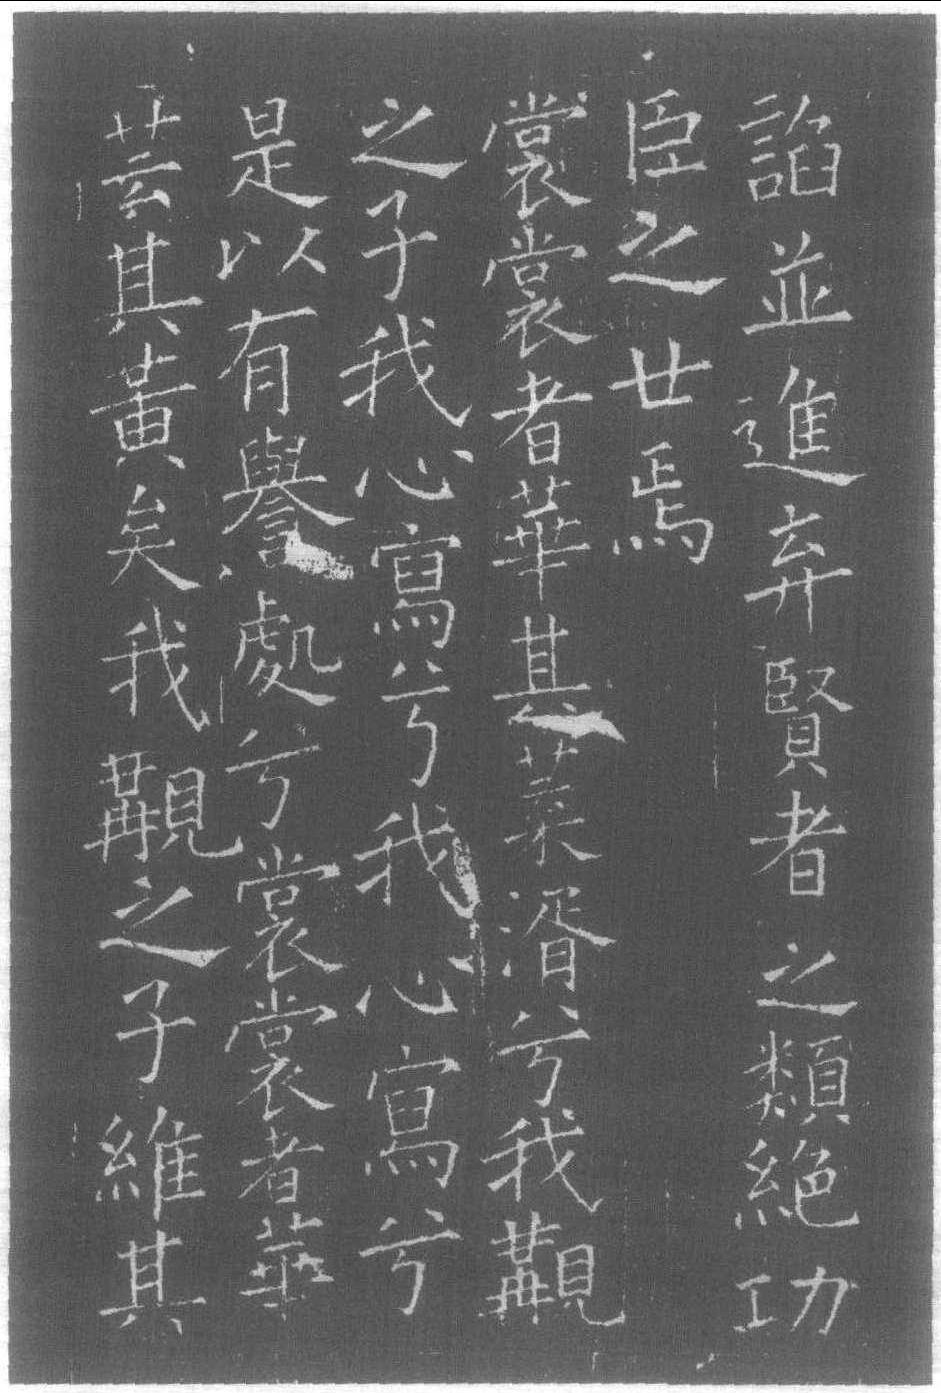 諂並進弃賢者之類絕功
臣之世焉
裳裳者華其葉湑兮我覯
之子我心寫兮我心寫兮
是以有譽處兮裳裳者華
芸其黃矣我覯之子維其